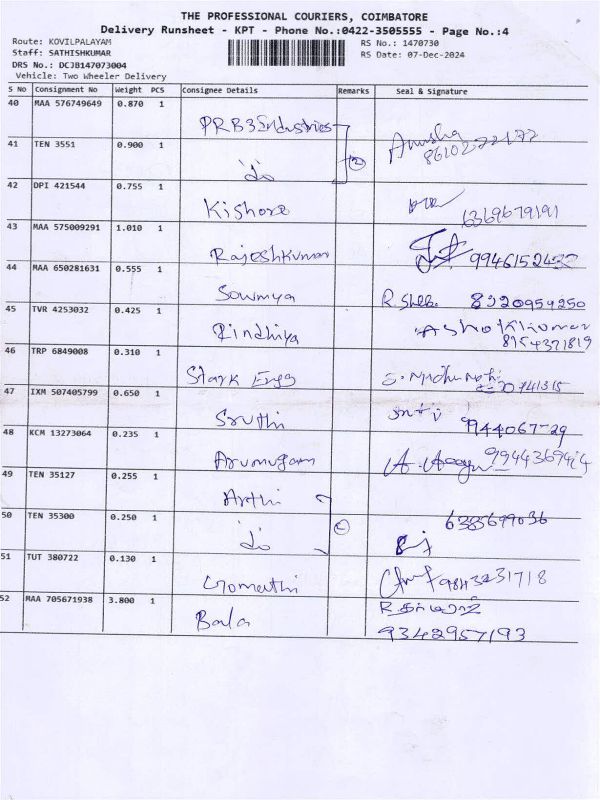 THE PROFESSIONAL COURIERS, COIMBATORE
Delivery Runsheet - KPT - Phone No.:0422-3505555 - Page No.:4
Route: KOVILPALAYAM
RS No.: 1470730
Staff: SATHISHKUMAR
RS Date: 07-Dec-2024
DRS No.: DCJB147073004
Vehicle: Two Wheeler Delivery
S No Consignment No Weight PCS Consignee Details Remarks Seal & Signature
40 MAA 576749649 0.870 1 PRB3 Industries Anusha
41 TEN 3551 0.900 1 do 2
42 DPI 421544 0.755 1 Kishore 6369679191
43 MAA 575009291 1.010 1 Rajeshkumar
44 MAA 650281631 0.555 1 Sowmya 8320959250
45 TVR 4253032 0.425 1 Rindhiya Ashokkumar
8154321819
46 TRP 6849008 0.310 1 Stark Engg
47 IXM 507405799 0.650 1 Sruthi
48 KCM 13273064 0.235 1 Arumugam
49 TEN 35127 0.255 1 Arthi
50 TEN 35300 0.250 1 do
51 TUT 380722 0.130 1 Gomathi 9843231718
52 MAA 705671938 3.800 1 Bala
9342957193